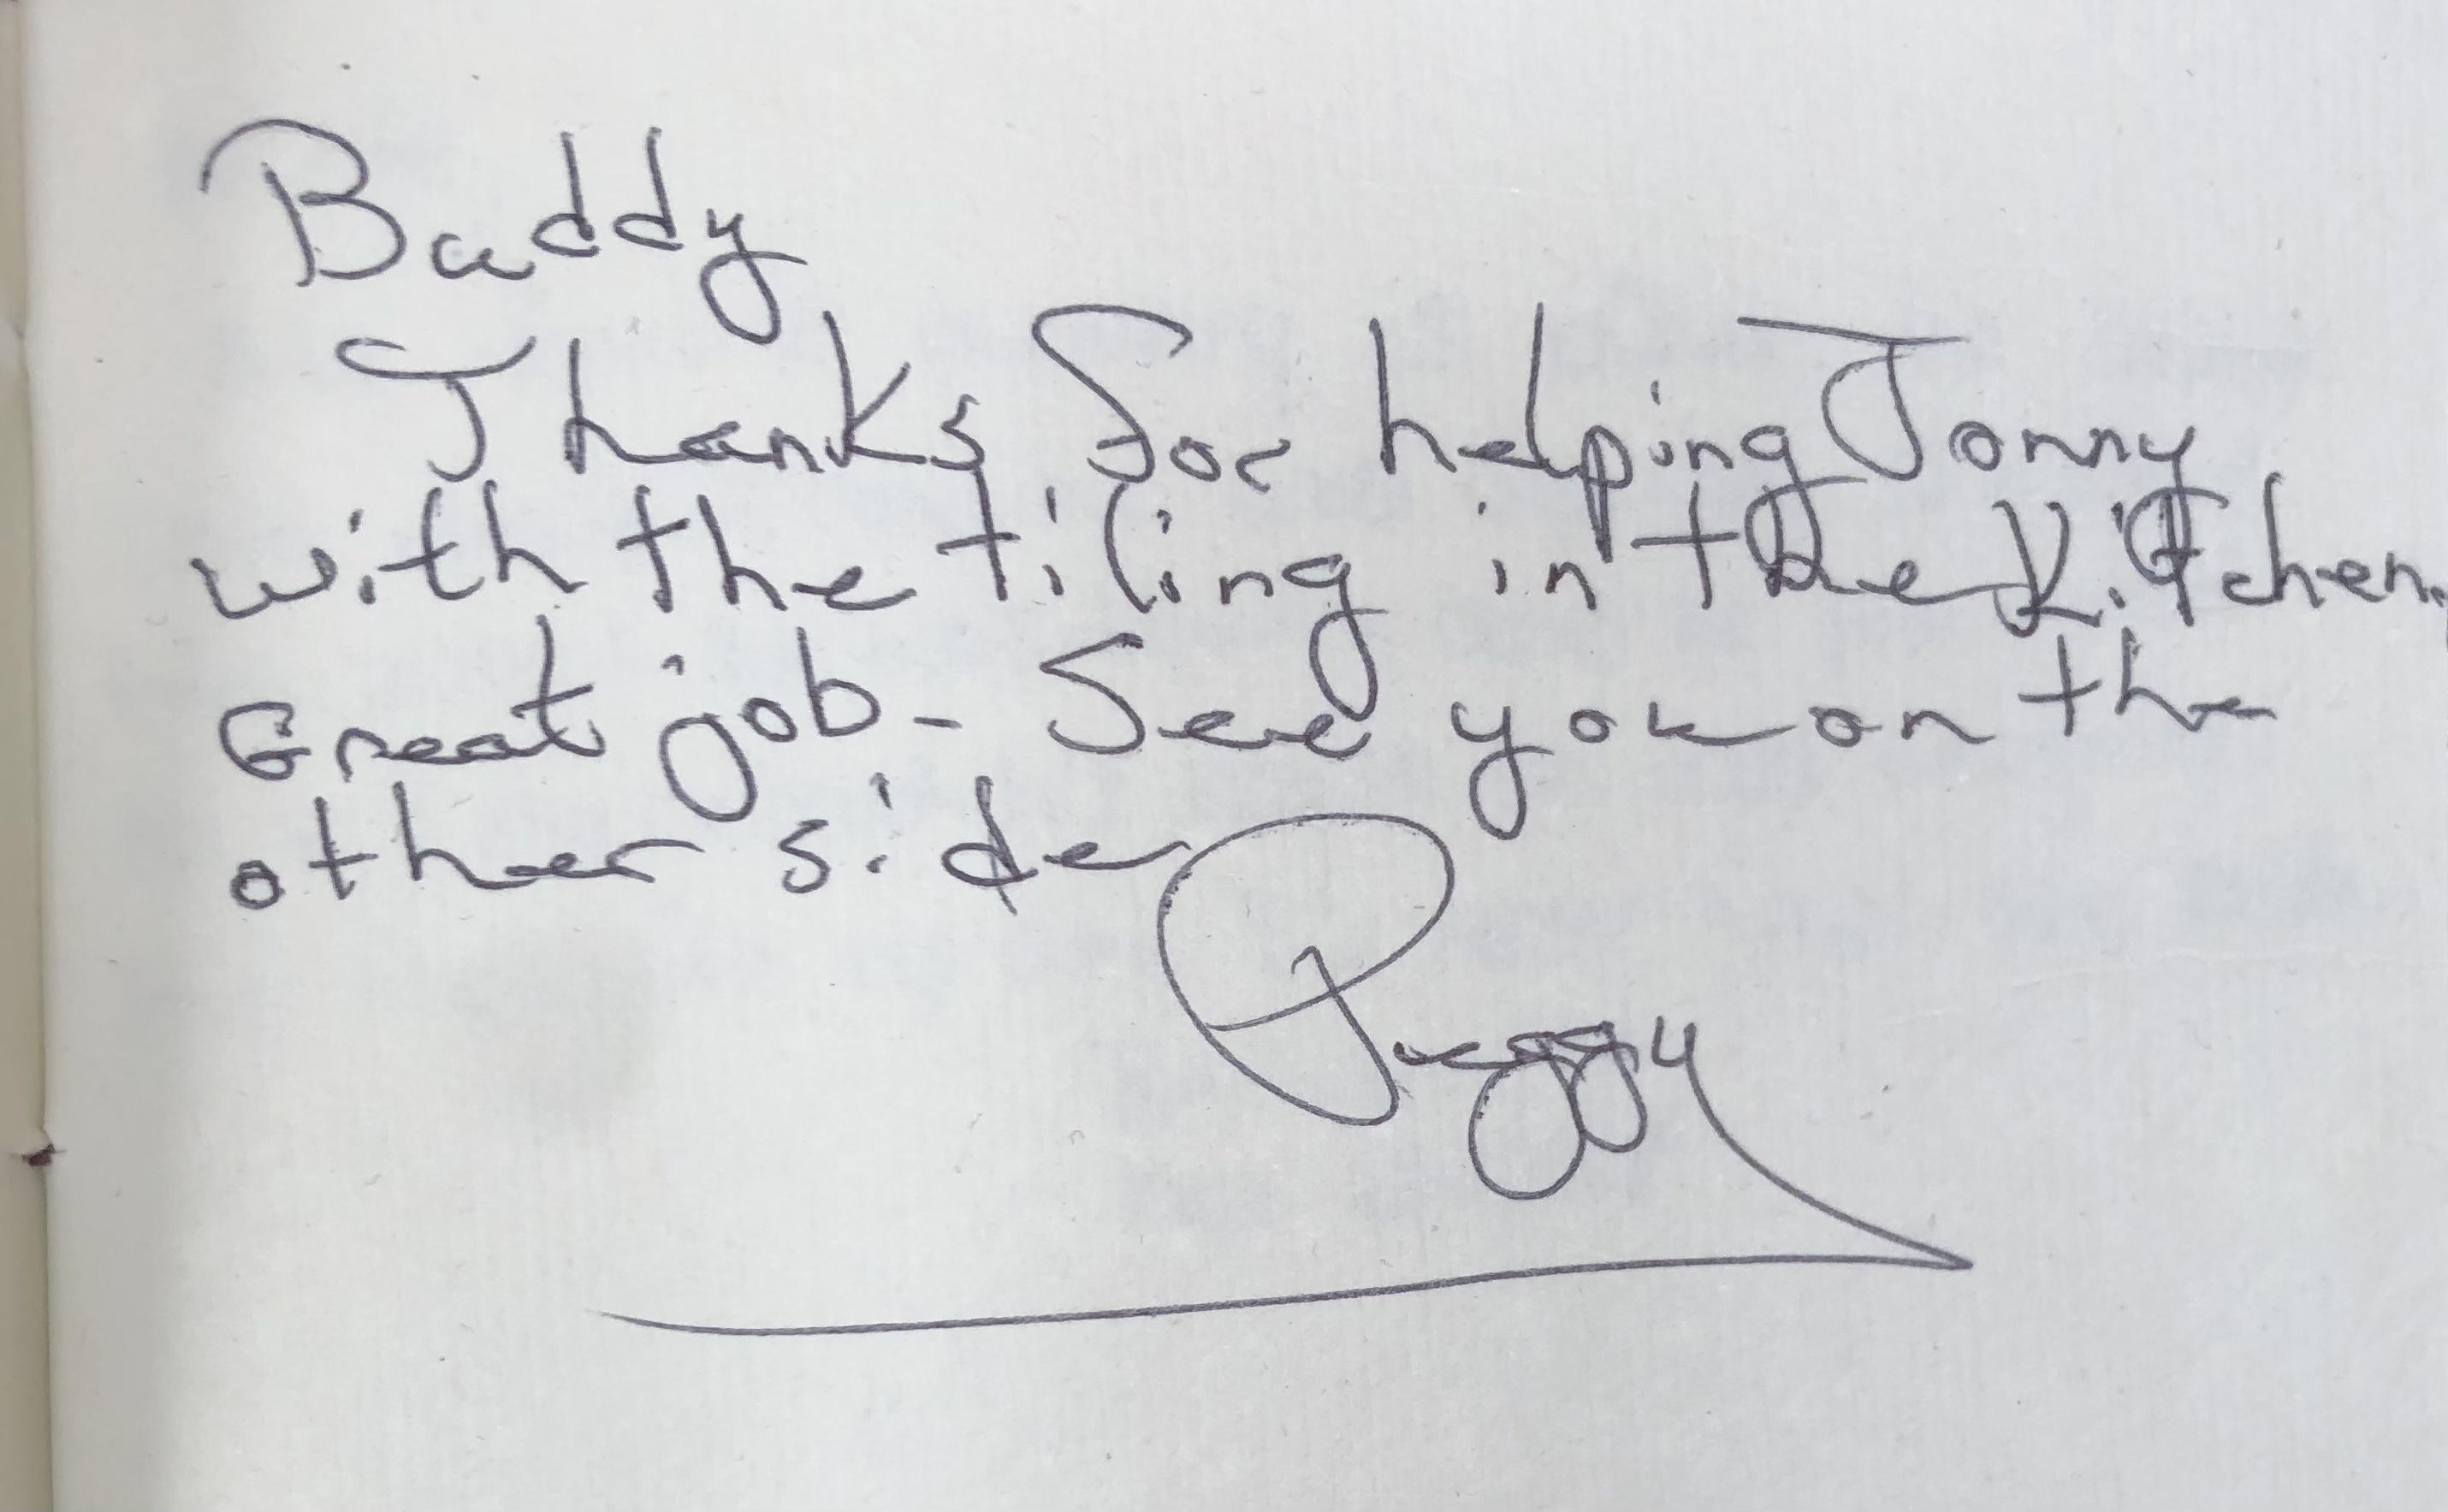 Buddy
Thanks for helping Jonny
with the tiling in the Kitchen.
Great job - See you on the
other side
Peggy